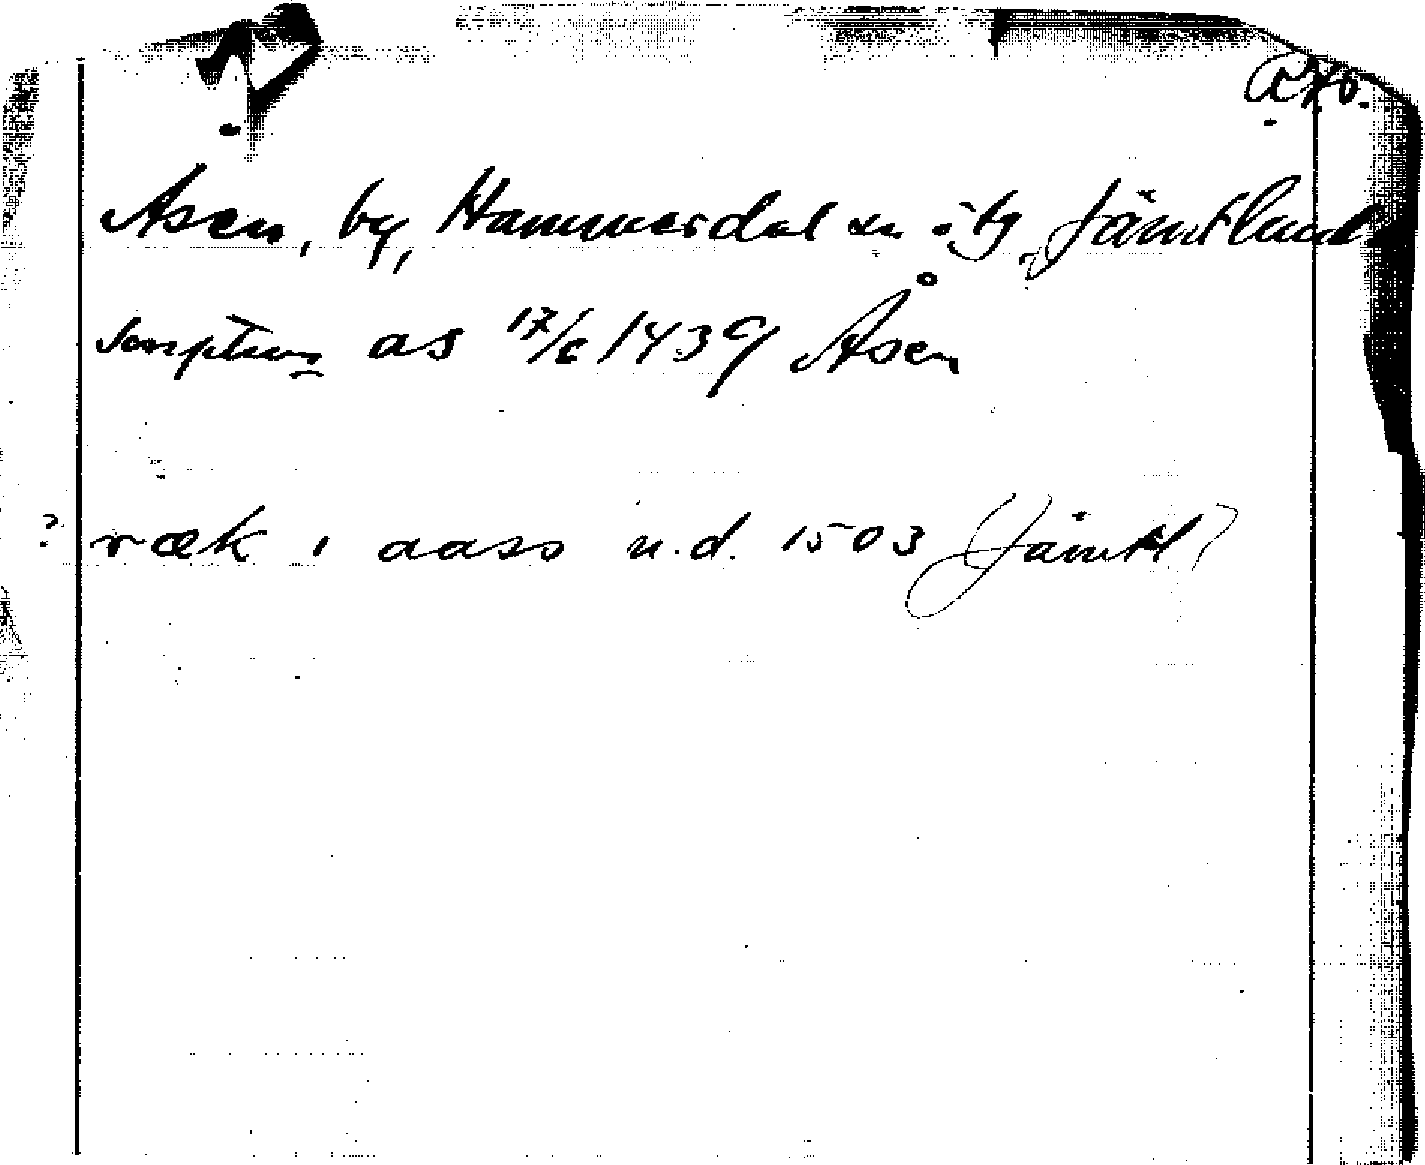 Åsen, by, Hammerdal sn o. tg, Jämtland
scriptum as 17/6 1439 Åsen
? ræk i aass n.d. 1503 (Jämtl)